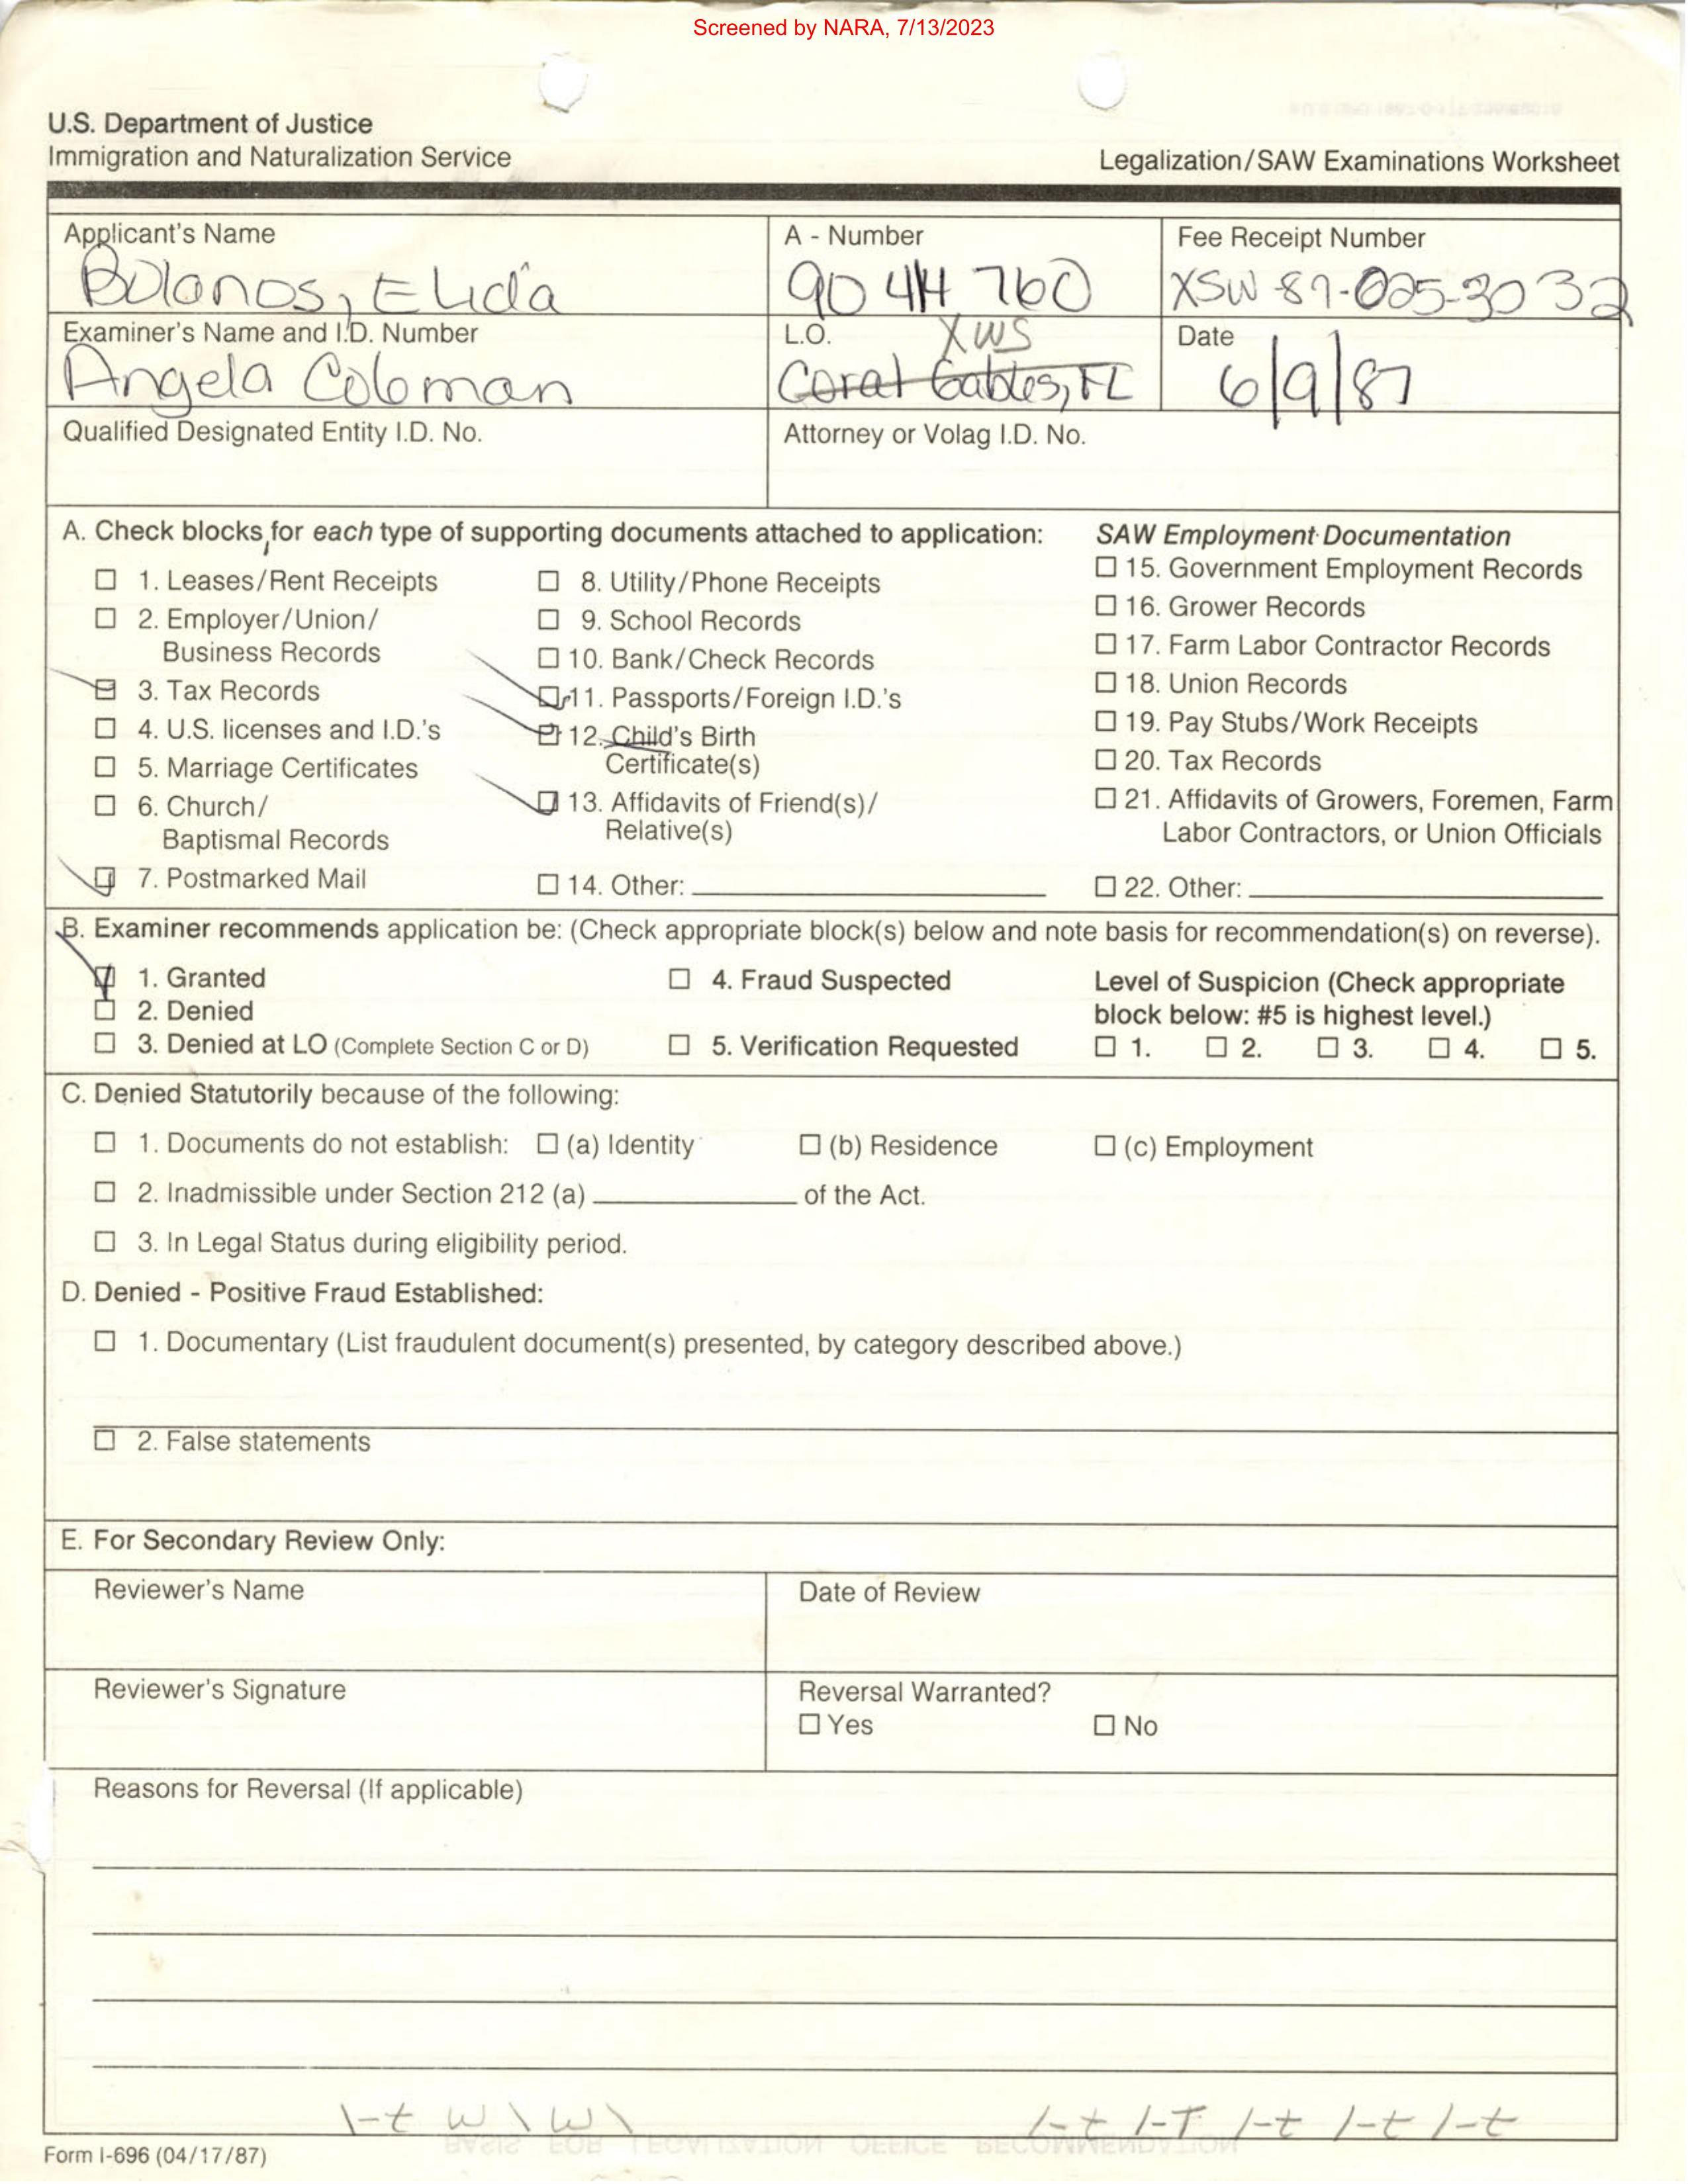 Screened by NARA, 7/13/2023
U.S. Department of Justice
Immigration and Naturalization Service
Legalization/SAW Examinations Worksheet
Applicant's Name
A - Number
Fee Receipt Number
Bolanos, Elida
90 414 760
XSW-87-025-3032
Examiner's Name and I.D. Number
L.O.
XWS
Date
Angela Coloman
Coral Gables, FL
6/9/87
Qualified Designated Entity I.D. No.
Attorney or Volag I.D. No.
A. Check blocks for each type of supporting documents attached to application:
☐ 1. Leases/Rent Receipts
☐ 2. Employer/Union/
Business Records
☑ 3. Tax Records
☐ 4. U.S. licenses and I.D.'s
☐ 5. Marriage Certificates
☐ 6. Church/
Baptismal Records
☑ 7. Postmarked Mail
☐ 8. Utility/Phone Receipts
☐ 9. School Records
☐ 10. Bank/Check Records
☑ 11. Passports/Foreign I.D.'s
☑ 12. Child's Birth
Certificate(s)
☑ 13. Affidavits of Friend(s)/
Relative(s)
☐ 14. Other:
SAW Employment Documentation
☐ 15. Government Employment Records
☐ 16. Grower Records
☐ 17. Farm Labor Contractor Records
☐ 18. Union Records
☐ 19. Pay Stubs/Work Receipts
☐ 20. Tax Records
☐ 21. Affidavits of Growers, Foremen, Farm
Labor Contractors, or Union Officials
☐ 22. Other:
B. Examiner recommends application be: (Check appropriate block(s) below and note basis for recommendation(s) on reverse).
☑ 1. Granted
☐ 2. Denied
☐ 3. Denied at LO (Complete Section C or D)
☐ 4. Fraud Suspected
☐ 5. Verification Requested
Level of Suspicion (Check appropriate
block below: #5 is highest level.)
☐ 1. ☐ 2. ☐ 3. ☐ 4. ☐ 5.
C. Denied Statutorily because of the following:
☐ 1. Documents do not establish: ☐ (a) Identity ☐ (b) Residence ☐ (c) Employment
☐ 2. Inadmissible under Section 212 (a) of the Act.
☐ 3. In Legal Status during eligibility period.
D. Denied - Positive Fraud Established:
☐ 1. Documentary (List fraudulent document(s) presented, by category described above.)
☐ 2. False statements
E. For Secondary Review Only:
Reviewer's Name
Date of Review
Reviewer's Signature
Reversal Warranted?
☐ Yes ☐ No
Reasons for Reversal (If applicable)
Form I-696 (04/17/87)